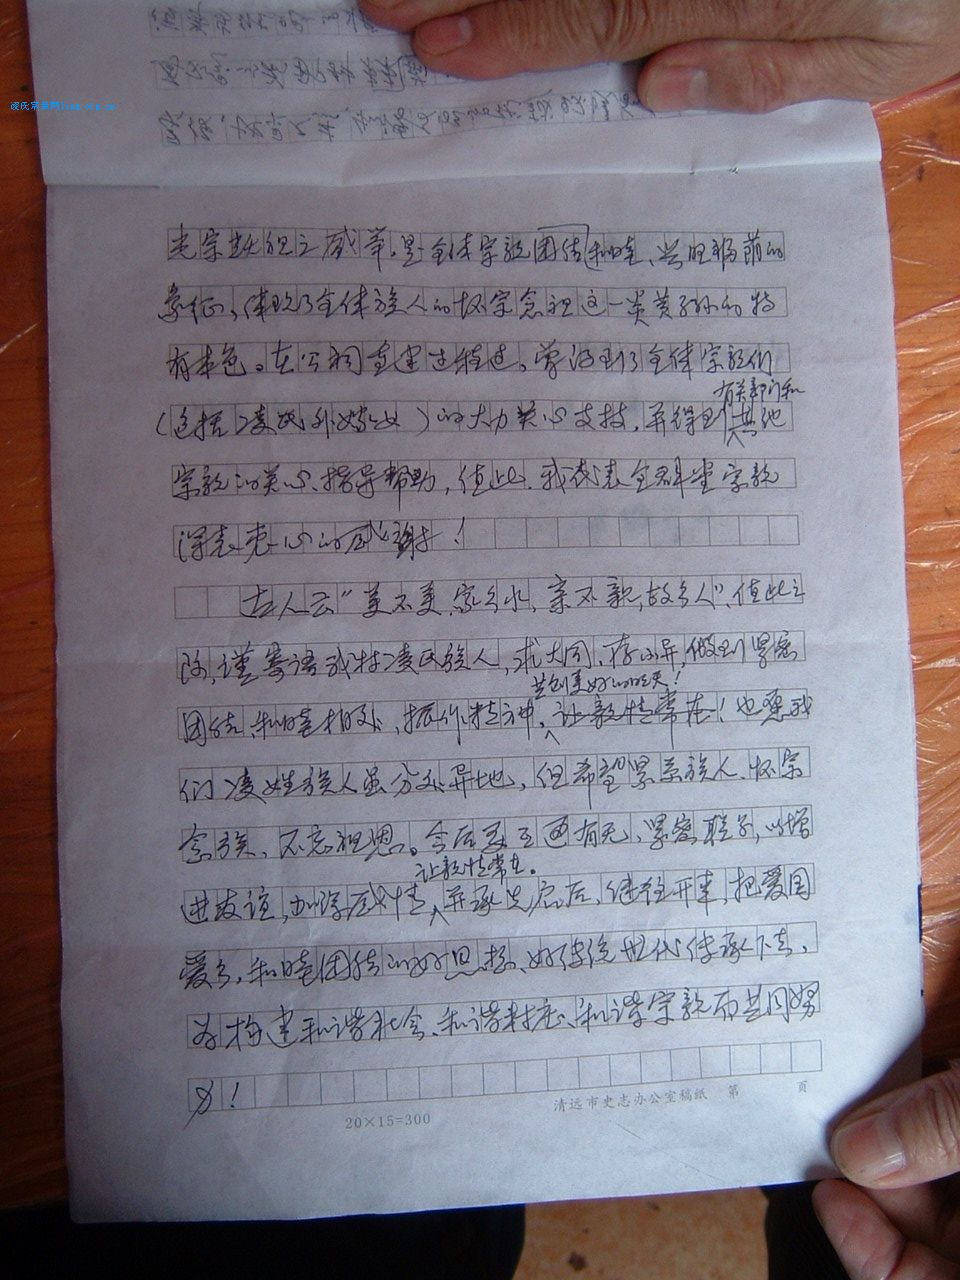 光宗耀祖之盛举,是全体宗亲团结和睦、兴旺
象征,体现了全体族人的怀宗念祖这一类黄子孙的特
有本色。在公祠重建过程过。曾得到了全体宗亲们
有关部门和
(包括凌氏外嫁女)的大力关心支技,并得到其他
宗亲的关心、指导帮助,值此、我代表全群堂宗亲
深表衷心的感谢!
古人云"美不美,家乡水,亲不亲,故乡人",值此之
际,谨寄语我村凌氏族人,求大同,存小异,做到紧密
共创美好的明天!
团结,和睦相处,振作精神,让亲情常在!也愿我
们凌姓族人虽分处异地,但希望紧系族人、怀宗
念族、不忘祖恩。今后要互通有无,紧密联系,以增
让亲情常在。
进友谊,加深感情,并承先启后,继往开来,把爱国
爱乡,和睦团结的好思想、好传统世代传承下去,
为构建和谐社会、和谐村庄、和谐宗亲而共同努
力!
20×15=300
清远市史志办公室稿纸 第 页